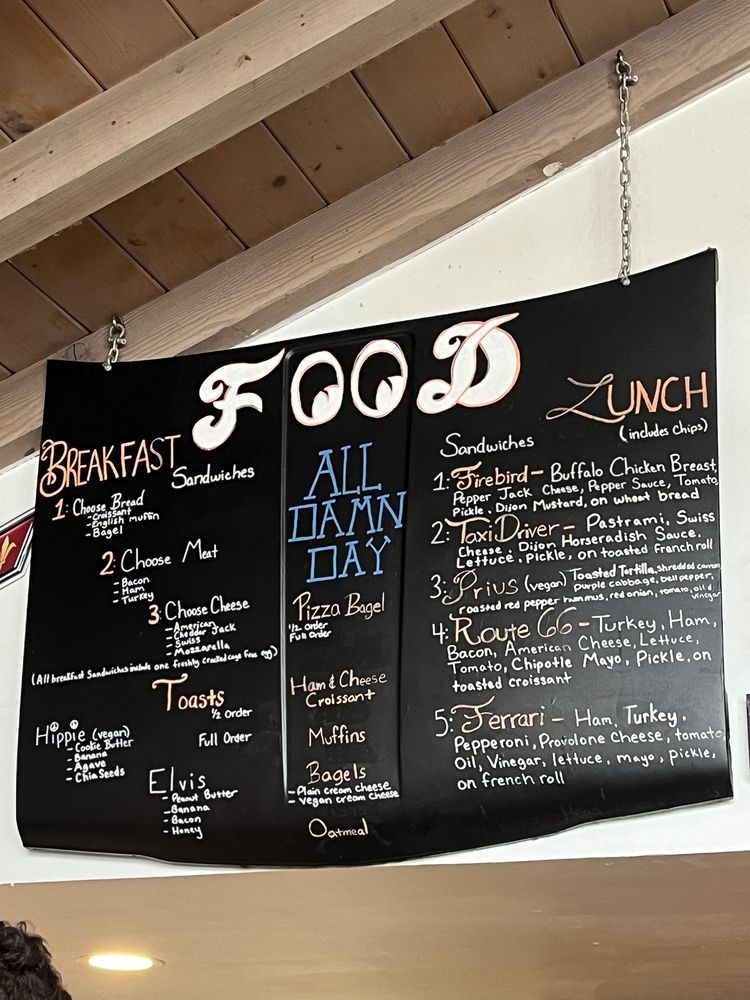 FOOD
BREAKFAST
Sandwiches
1: Choose Bread
- Croissant
- English muffin
- Bagel
2: Choose Meat
- Bacon
- Ham
- Turkey
3: Choose Cheese
- American
- Cheddar Jack
- Swiss
- Mozzarella
(All breakfast Sandwiches include one freshly cracked cage free egg)
Toasts
1/2 Order
Full Order
Hippie (vegan)
- Cookie Butter
- Banana
- Agave
- Chia Seeds
Elvis
- Peanut Butter
- Banana
- Bacon
- Honey
ALL
DAMN
DAY
Pizza Bagel
1/2 Order
Full Order
Ham & Cheese
Croissant
Muffins
Bagels
- Plain cream cheese
- Vegan cream cheese
Oatmeal
LUNCH
(includes Chips)
Sandwiches
1: Firebird - Buffalo Chicken Breast,
Pepper Jack Cheese, Pepper Sauce, Tomato,
Pickle, Dijon Mustard, on wheat bread
2: Taxi Driver - Pastrami, Swiss
Cheese, Dijon Horseradish Sauce,
Lettuce, Pickle, on toasted french roll
3: Prius (vegan) Toasted Tortilla, shredded
purple cabbage, bell pepper,
roasted red pepper hummus, red onion, tomato, oil &
vinegar
4: Route 66 - Turkey, Ham,
Bacon, American Cheese, Lettuce,
Tomato, Chipotle Mayo, Pickle, on
toasted croissant
5: Ferrari - Ham, Turkey,
Pepperoni, Provolone Cheese, tomato
Oil, Vinegar, lettuce, mayo, pickle,
on french roll